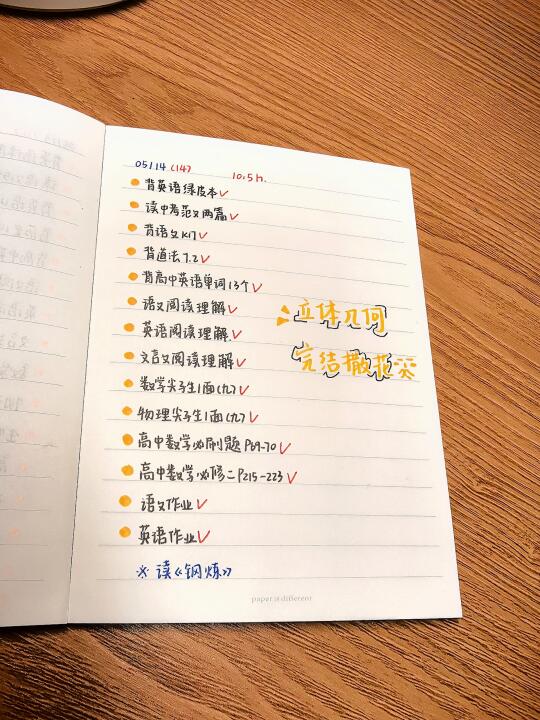 05/14 (147) 10.5h.
背英语绿皮本✓
读中考范文两篇✓
背语文K17✓
背道法7.2✓
背高中英语单词13个✓
语文阅读理解✓
英语阅读理解✓
文言文阅读理解✓
数学尖子生1面(九)✓
物理尖子生1面(九)✓
高中数学必刷题P69-70✓
高中数学必修二P215-223✓
语文作业✓
英语作业✓
※ 读《钢炼》
立体几何
完结撒花
paper is different